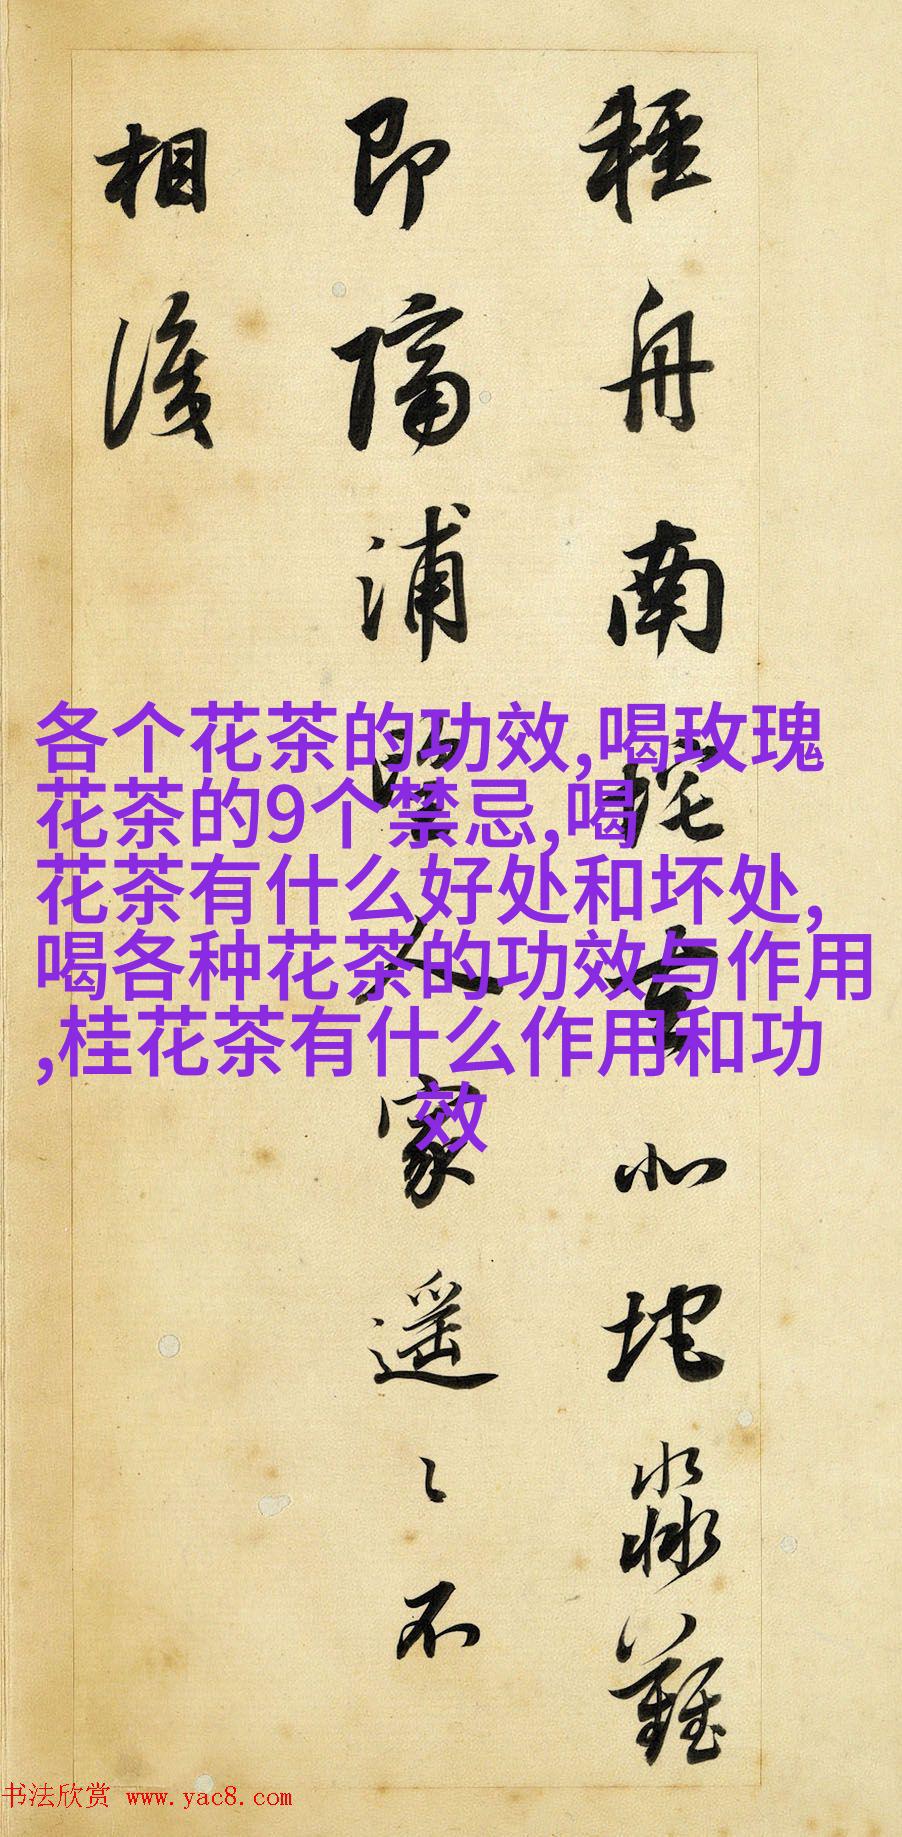 輕舟南垞去北垞淼難
即隔浦望人家遥〻不
相識
各个花茶的功效,喝玫瑰
花茶的9个禁忌,喝
花茶有什么好处和坏处,
喝各种花茶的功效与作用
,桂花茶有什么作用和功
效
书法欣赏 www.yac8.com